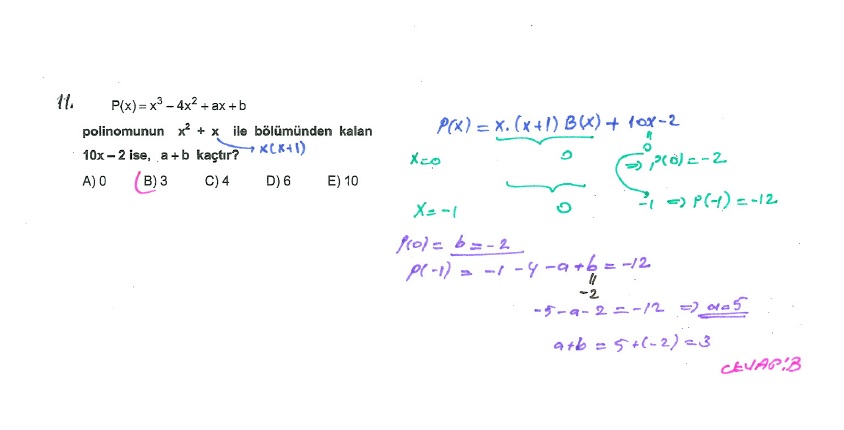 11. P(x) = x³ – 4x² + ax + b
polinomunun x² + x ile bölümünden kalan
x(x+1)
10x – 2 ise, a + b kaçtır?
A) 0 B) 3 C) 4 D) 6 E) 10
P(x) = x.(x+1) B(x) + 10x-2
x=0 0 0 => P(0) = -2
x=-1 0 -1 => P(-1) = -12
P(0) = b = -2
P(-1) = -1 -4 -a +b = -12
-2
-5-a-2 = -12 => a=5
a+b = 5+(-2) = 3
CEVAP:B